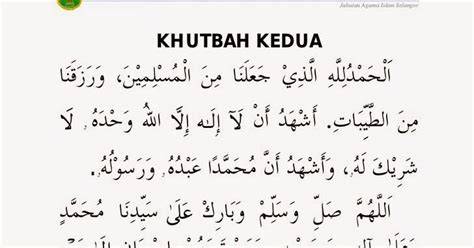 Jabatan Agama Islam Selangor
KHUTBAH KEDUA
اَلْحَمْدُلِلَّهِ الَّذِيْ جَعَلَنَا مِنَ الْمُسْلِمِيْنَ، وَرَزَقَنَا
مِنَ الطَّيِّبَاتِ. أَشْهَدُ أَنْ لَآ إِلٰهَ إِلَّا اللهُ وَحْدَهُ، لَا
شَرِيْكَ لَهُ، وَأَشْهَدُ أَنَّ مُحَمَّدًا عَبْدُهُ، وَرَسُوْلُهُ.
اَللَّهُمَّ صَلِّ وَسَلِّمْ وَبَارِكْ عَلَىٰ سَيِّدِنَا مُحَمَّدٍ